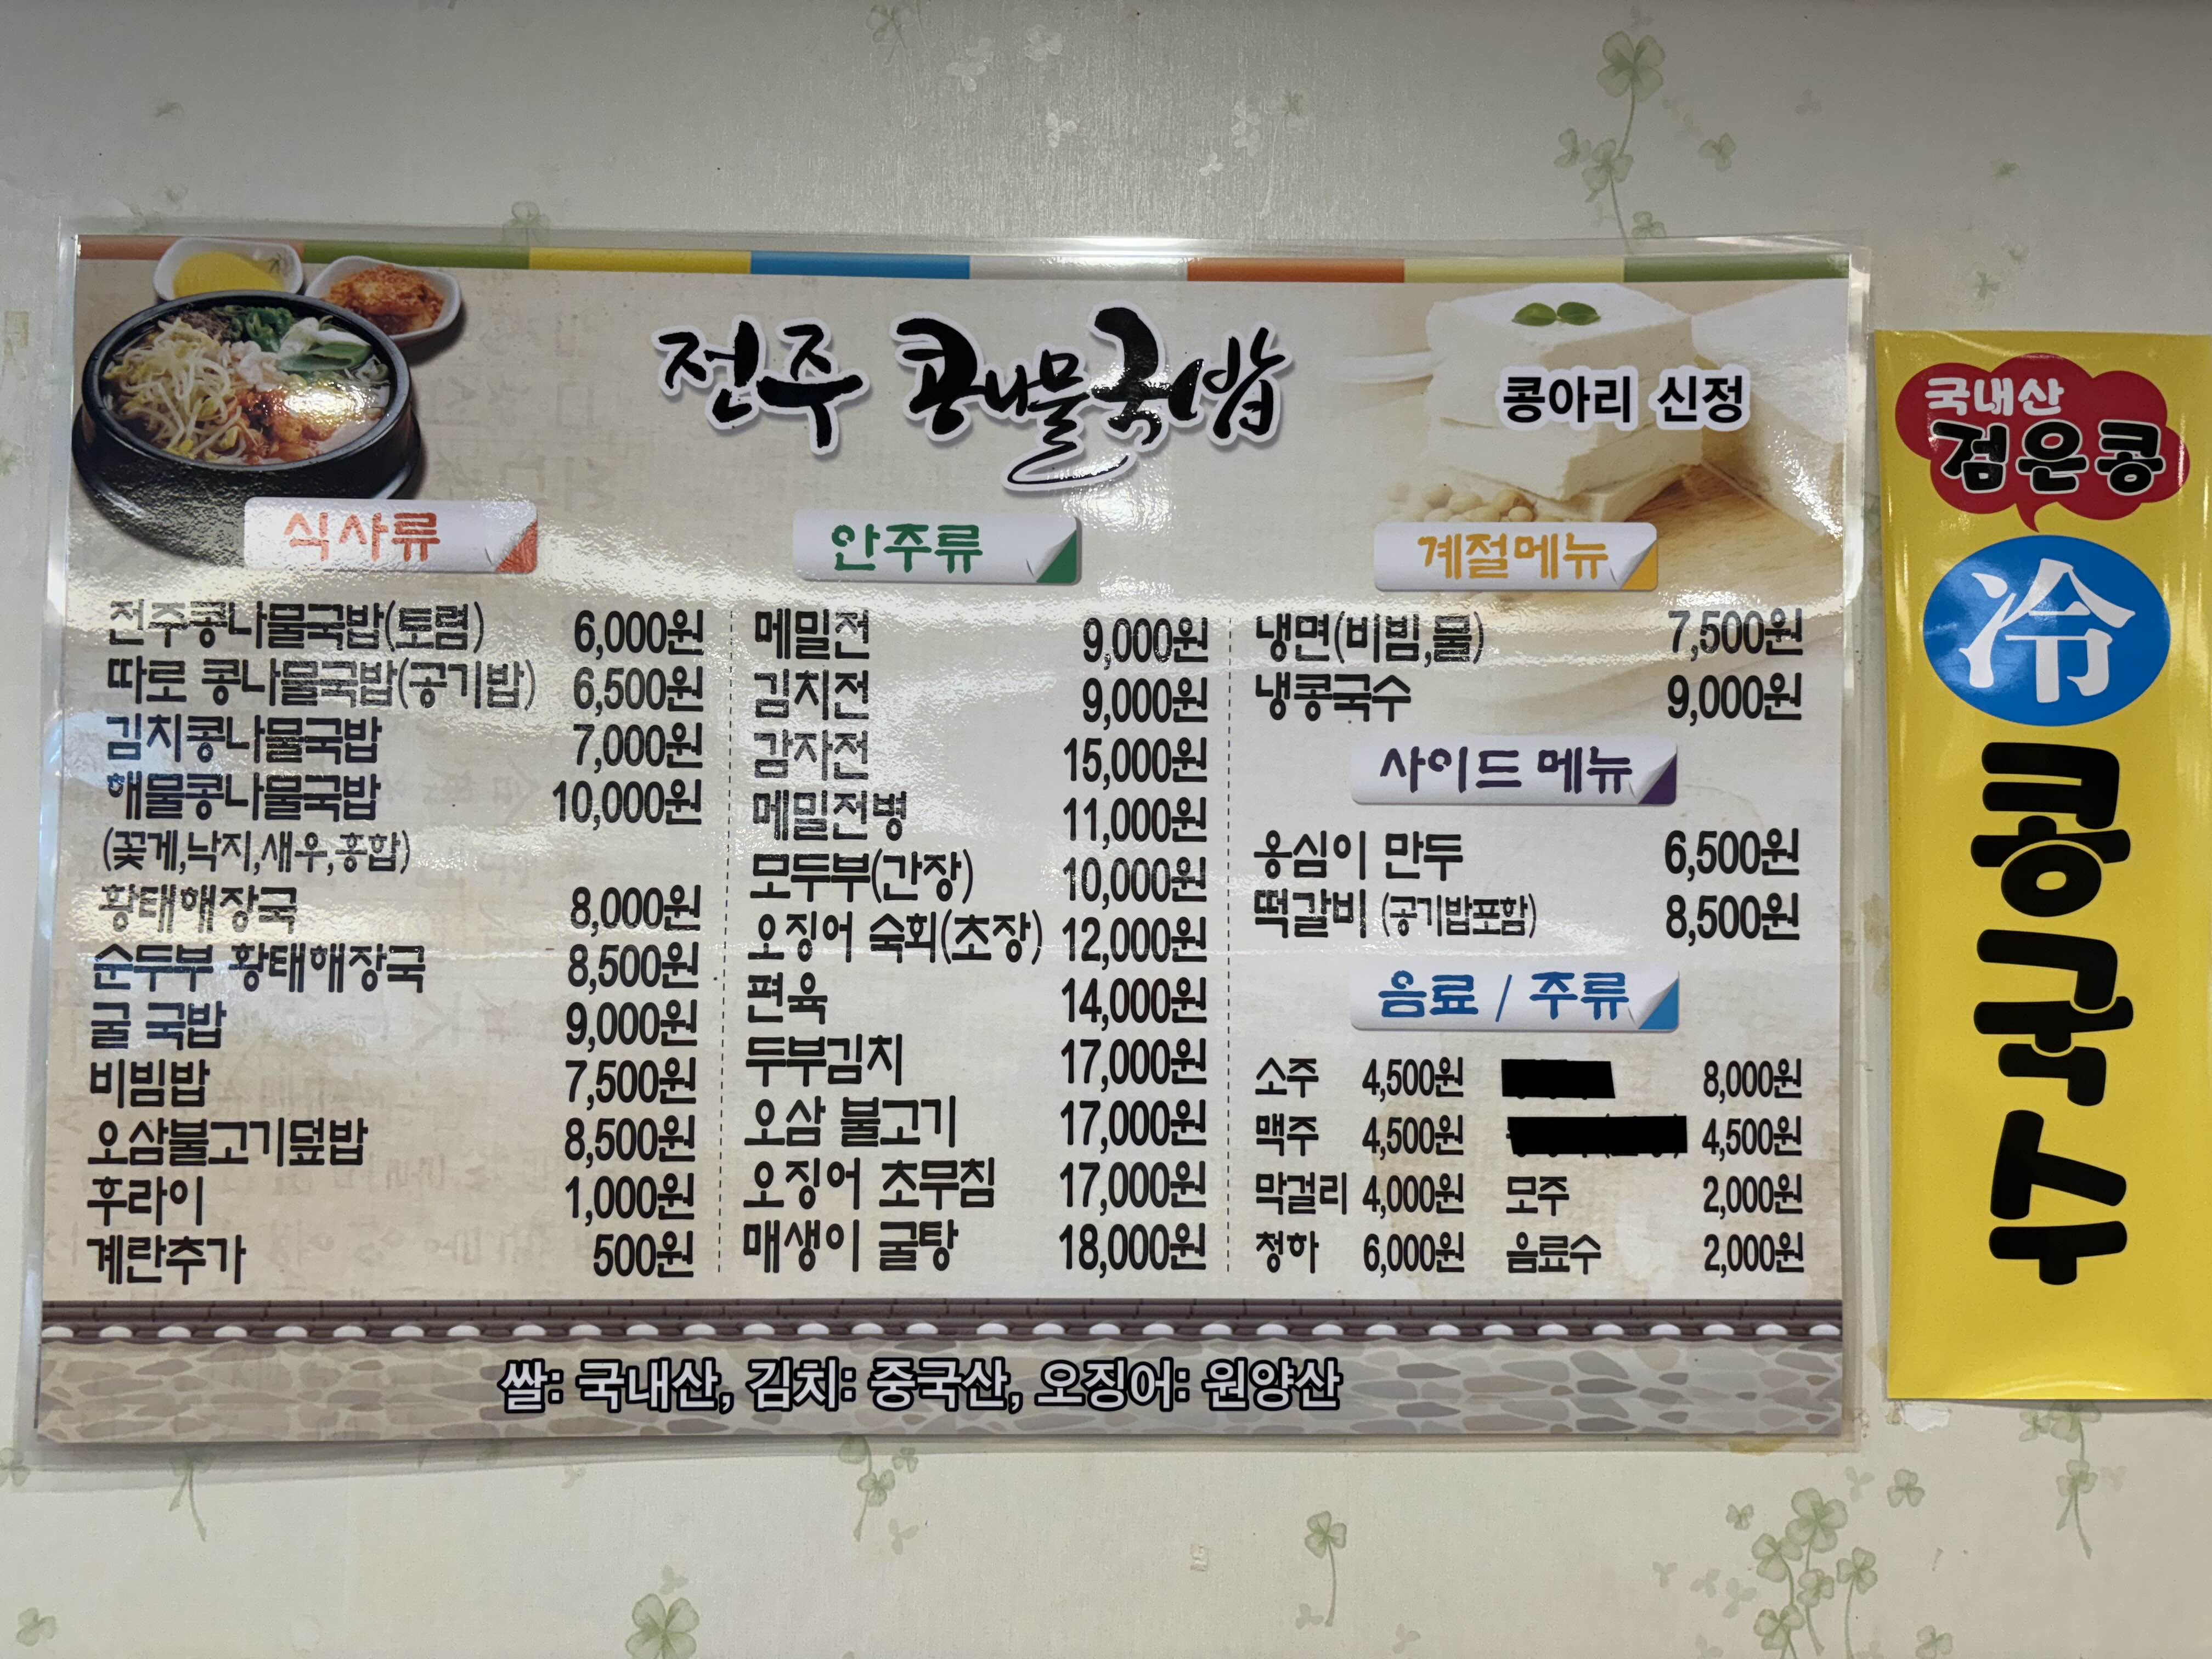 전주 콩나물국밥
콩아리 신정
식사류
전주콩나물국밥(토렴) 6,000원
따로 콩나물국밥(공기밥) 6,500원
김치콩나물국밥 7,000원
해물콩나물국밥 10,000원
(꽃게,낙지,새우,홍합)
황태해장국 8,000원
순두부 황태해장국 8,500원
굴 국밥 9,000원
비빔밥 7,500원
오삼불고기덮밥 8,500원
후라이 1,000원
계란추가 500원
안주류
메밀전 9,000원
김치전 9,000원
감자전 15,000원
메밀전병 11,000원
모두부(간장) 10,000원
오징어 숙회(초장) 12,000원
편육 14,000원
두부김치 17,000원
오삼 불고기 17,000원
오징어 초무침 17,000원
매생이 굴탕 18,000원
계절메뉴
냉면(비빔,물) 7,500원
냉콩국수 9,000원
사이드 메뉴
옹심이 만두 6,500원
떡갈비 (공기밥포함) 8,500원
음료 / 주류
소주 4,500원 8,000원
맥주 4,500원 4,500원
막걸리 4,000원 모주 2,000원
청하 6,000원 음료수 2,000원
쌀: 국내산, 김치: 중국산, 오징어: 원양산
국내산
검은콩
冷
콩국수